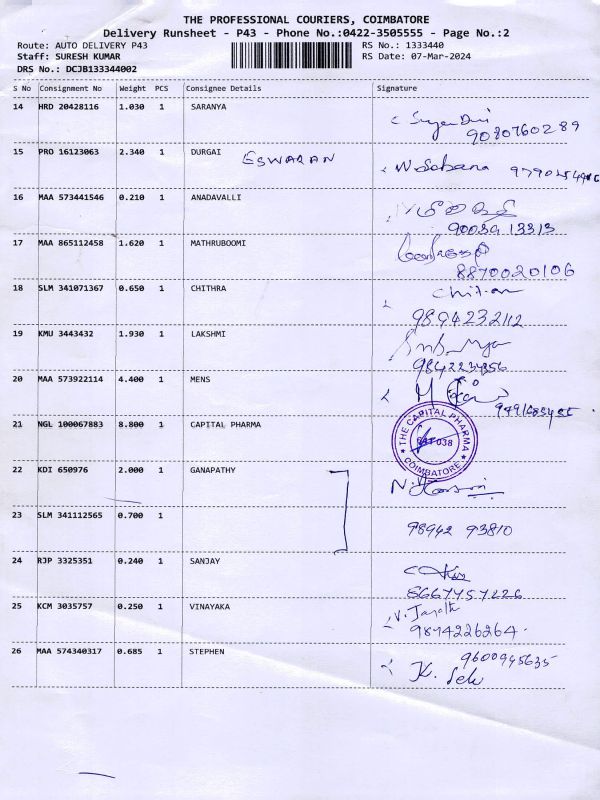 THE PROFESSIONAL COURIERS, COIMBATORE
Delivery Runsheet - P43 - Phone No.:0422-3505555 - Page No.:2
Route: AUTO DELIVERY P43 RS No.: 1333440
Staff: SURESH KUMAR RS Date: 07-Mar-2024
DRS No.: DCJB133344002
S No Consignment No Weight PCS Consignee Details Signature
14 HRD 20428116 1.030 1 SARANYA
9080760289
15 PRO 16123063 2.340 1 DURGAI ESWARAN N. Sobana
16 MAA 573441546 0.210 1 ANADAVALLI
9003913313
17 MAA 865112458 1.620 1 MATHRUBOOMI
8870020106
18 SLM 341071367 0.650 1 CHITHRA
9894232112
19 KMU 3443432 1.930 1 LAKSHMI
9842234356
20 MAA 573922114 4.400 1 MENS
21 NGL 100067883 8.800 1 CAPITAL PHARMA
THE CAPITAL PHARMA
038
COIMBATORE
22 KDI 650976 2.000 1 GANAPATHY
23 SLM 341112565 0.700 1
98942 93810
24 RJP 3325351 0.240 1 SANJAY
8667457226
25 KCM 3035757 0.250 1 VINAYAKA
9814226264
26 MAA 574340317 0.685 1 STEPHEN 9600945635